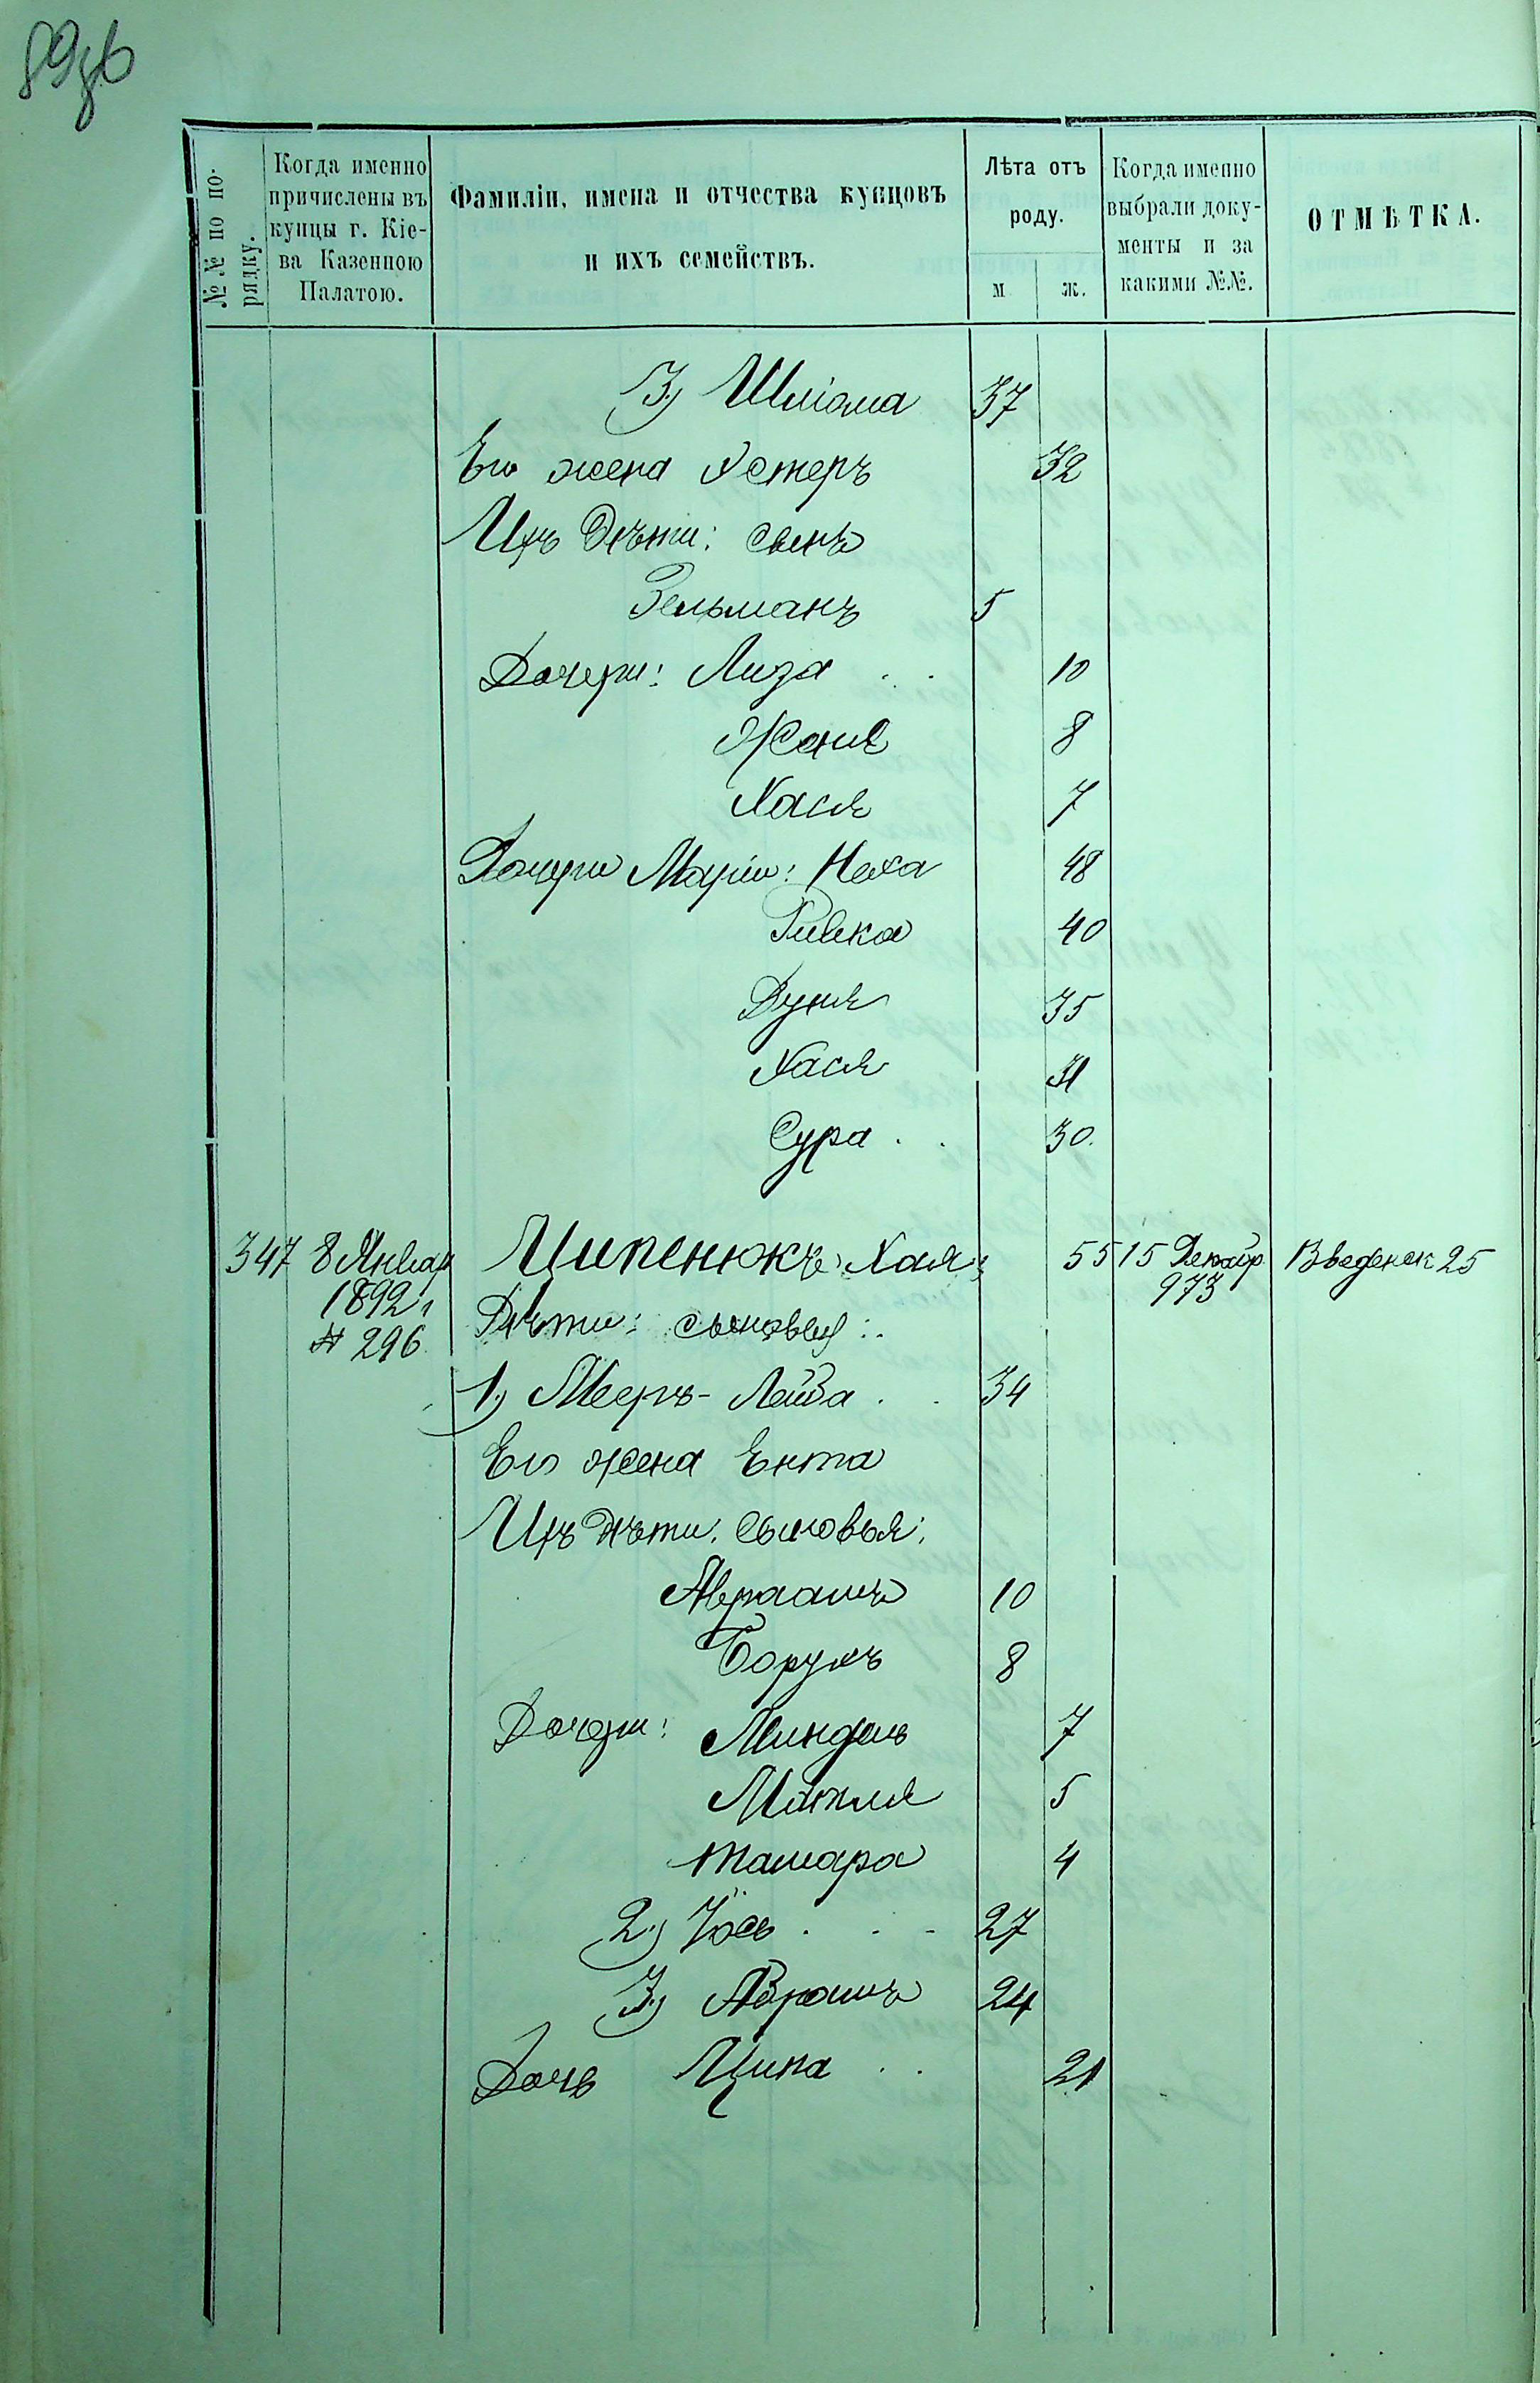 89зв
№№ по по-
рядку.
Когда именно
причислены въ
купцы г. Кіе-
ва Казенною
Палатою.
Фамиліи, имена и отчества купцовъ
и ихъ семействъ.
Лѣта отъ
роду.
м.
ж.
Когда именно
выбрали доку-
менты и за
какими №№.
ОТМѢТКА.
3) Шліома 37
Его жена Эстеръ 32
Ихъ дѣти: сынъ
Зельманъ 5
Дочери: Лиза . . 10
Женя 8
Хася 7
Дочери Маріи: Неха 48
Ривка 40
Дуня 35
Хася 31
Сура . . 30.
347 8 Января Ципенюкъ Хая 55 15 Декабр. Введенск 25
1892 г. 973
№ 296.
Дѣти: сыновья:
1) Мееръ-Лейба . . 34
Его жена Ента
Ихъ дѣти: Сыновья:
Авраамъ 10
Борухъ 8
Дочери: Миндль 7
Матля 5
Тамара 4
2) Іось . . - 27
3) Абрамъ 24
Дочь Ципа . . 21